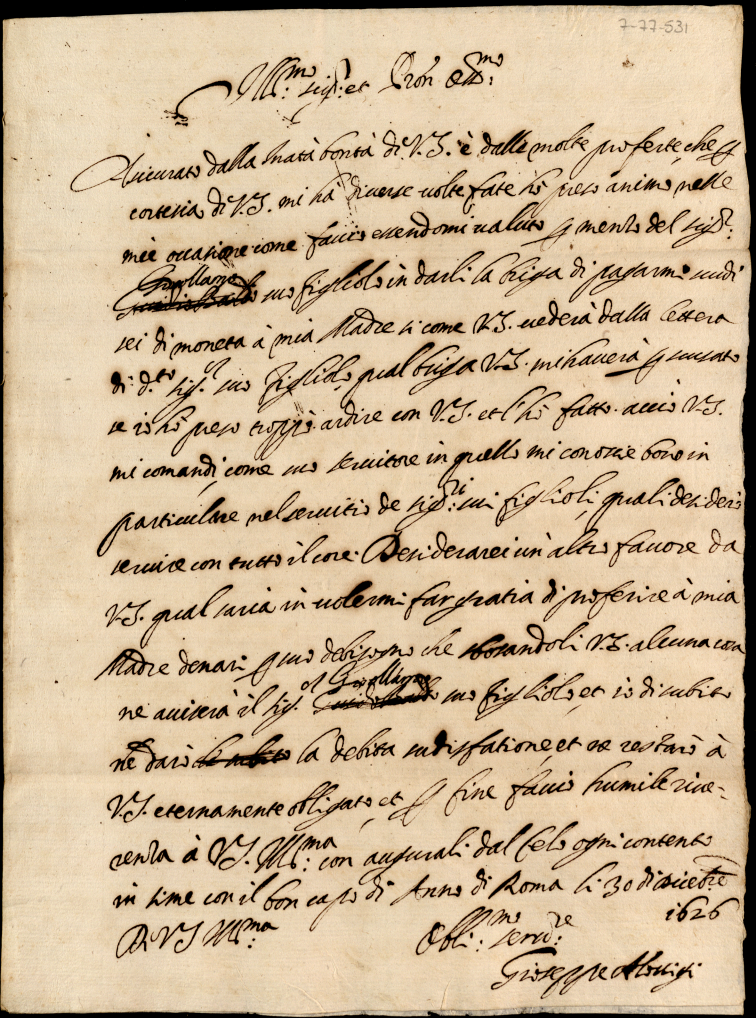 7-77-531
Ill.mo sig.r et Pron Oss.mo
Asicurato dalla inata bontà di V.S. è dalle molte proferte, che p
cortesia di V.S. mi hà diverse volte fate hò preso animo nelle
mie occasione come faccio essendomi valuto p mezzo del sig.r
Girollamo
suo figliolo in darli la briga di pagarmi scudi
sei di moneta à mia Madre si come V.S. vederà dalla lettera
di d.to sig.r suo figliolo, qual briga V.S. mi haverà p scusato
se io hò preso troppo ardire con V.S. et l'hò fatto acciò V.S.
mi comandi, come suo servitore in quello mi conoscie bono in
particulare nel servitio de sig.ri sui figlioli quali desidero
servire con tutto il core. Desiderarei un altro favore da
V.S. qual saria in volermi far gratia di proferire à mia
Madre denari p suo debisogno che sborsandoli V.S. alcuna cosa
Girollamo
ne aviserà il sig.r suo figliolo et io di subito
ne darò la debita sudisfatione, et ne restarò à
V.S. eternamente obligato, et p fine faccio humile rive-
renza à V.S. Ill.ma con augurali dal Celo ogni contento
insieme con il bon capo di Anno di Roma li 30 di dicebre
1626
Di V.S. Ill.ma
Obli.mo serv.re
Gioseppe